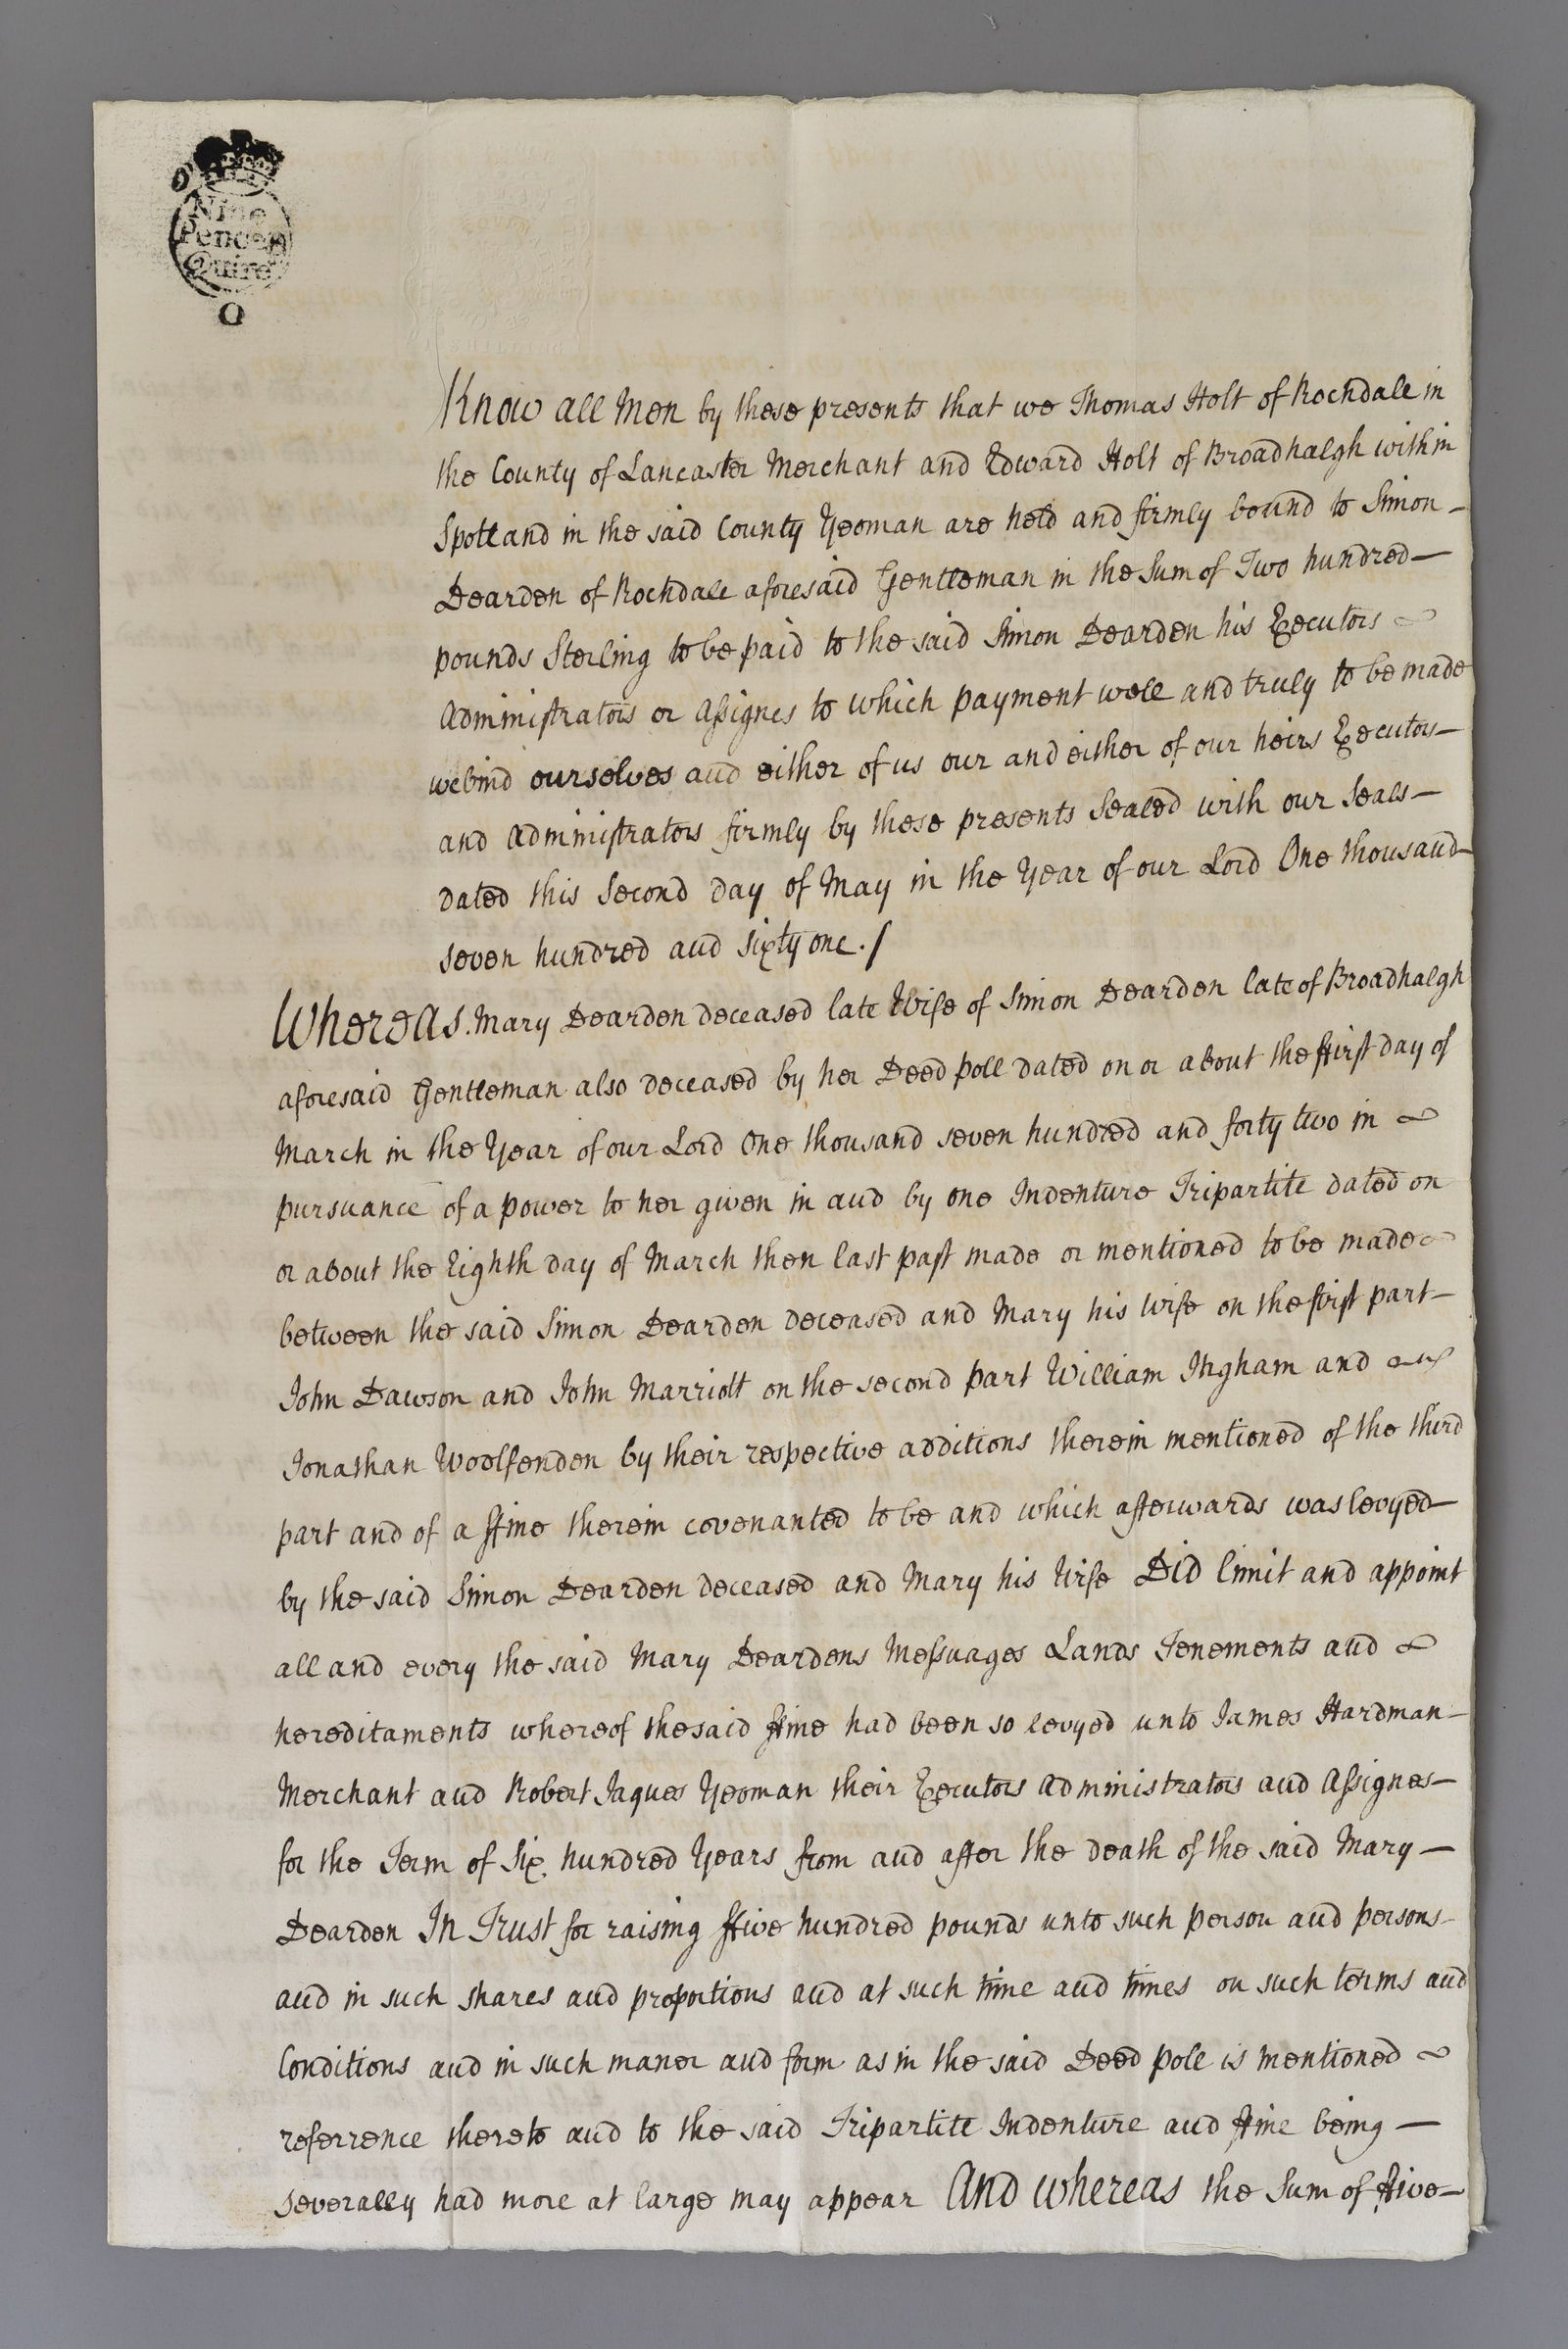 Nine
Pence p
Quire
O
Know all Men by these presents that we Thomas Holt of Rochdale in
the County of Lancaster Merchant and Edward Holt of Broadhalgh within
Spotland in the said County Yeoman are held and firmly bound to Simon –
Dearden of Rochdale aforesaid Gentleman in the Sum of Two hundred –
pounds Sterling to be paid to the said Simon Dearden his Executors
Administrators or Assignes to which payment well and truly to be made
we bind ourselves and either of us our and either of our heirs Executors –
and Administrators firmly by these presents Sealed with our Seals –
dated this Second day of May in the Year of our Lord One thousand
seven hundred and sixty one. /
Whereas Mary Dearden deceased late Wife of Simon Dearden late of Broadhalgh
aforesaid Gentleman also deceased by her Deed poll dated on or about the ffirst day of
March in the Year of our Lord One thousand seven hundred and forty two in
pursuance of a power to her given in and by one Indenture Tripartite dated on
or about the Eighth day of March then last past made or mentioned to be made
between the said Simon Dearden deceased and Mary his Wife on the ffirst part –
John Dawson and John Marriott on the second part William Ingham and
Jonathan Woolfenden by their respective additions therein mentioned of the third
part and of a ffine therein covenanted to be and which afterwards was levyed –
by the said Simon Dearden deceased and Mary his Wife Did limit and appoint
all and every the said Mary Deardens Messuages Lands Tenements and
hereditaments whereof the said ffine had been so levyed unto James Hardman –
Merchant and Robert Jaques Yeoman their Executors Administrators and Assignes –
for the Term of Six hundred Years from and after the death of the said Mary –
Dearden In Trust for raising ffive hundred pounds unto such person and persons –
and in such shares and proportions and at such time and times on such terms and
Conditions and in such maner and form as in the said Deed pole is mentioned
referrence thereto and to the said Tripartite Indenture and ffine being –
severally had more at large may appear And whereas the Sum of ffive –